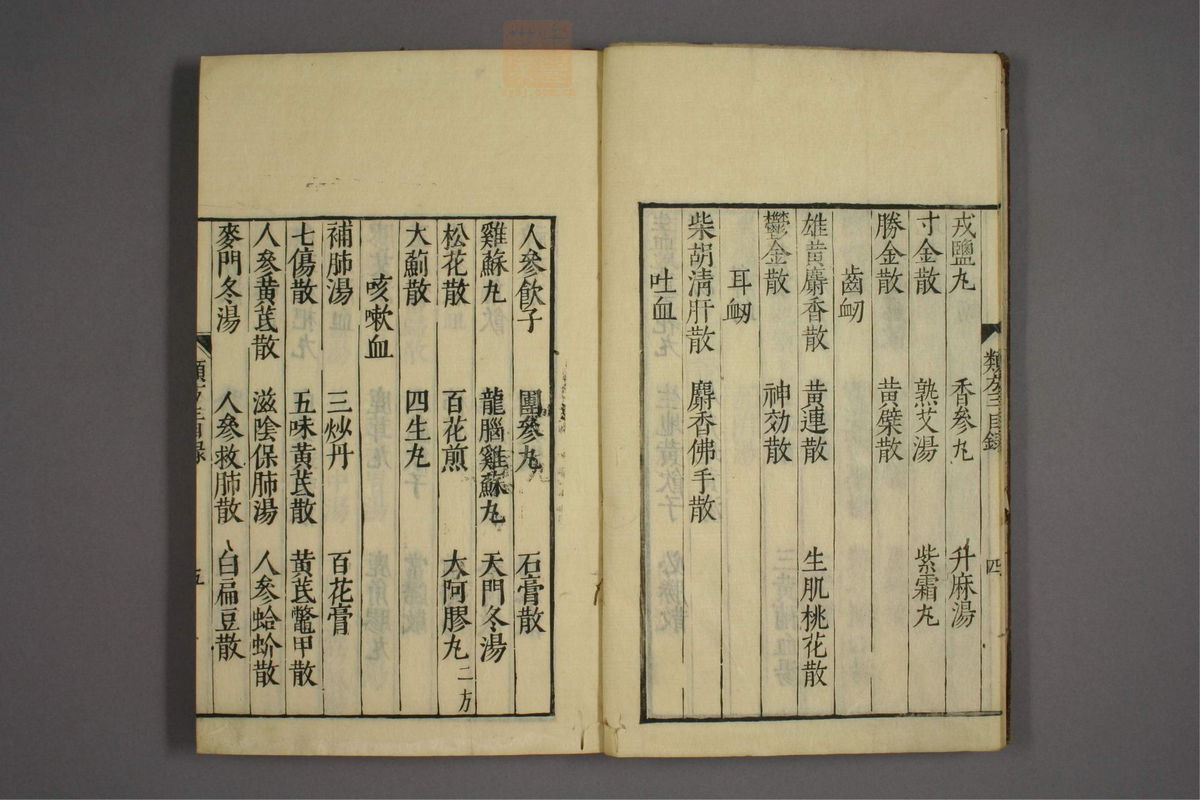 戎鹽丸 香參丸 升麻湯
寸金散 熟艾湯 紫霜丸
勝金散 黃檗散
齒衂
雄黃麝香散 黃連散 生肌桃花散
鬱金散 神効散
耳衂
柴胡清肝散 麝香佛手散
吐血
人參飲子 團參丸 石膏散
雞蘇丸 龍腦雞蘇丸 天門冬湯
松花散 百花煎 大阿膠丸二方
大薊散 四生丸
咳嗽血
補肺湯 三炒丹 百花膏
七傷散 五味黃芪散 黃芪鼈甲散
人參黃芪散 滋陰保肺湯 人參蛤蚧散
麥門冬湯 人參救肺散 白扁豆散